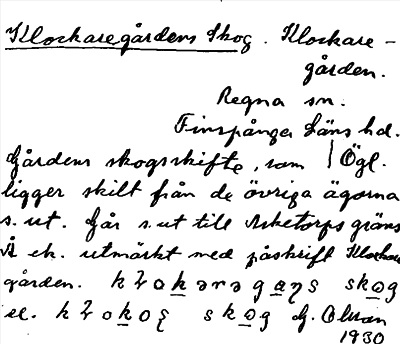 Klockaregårdens Skog. Klockare-
gården.
Regna sn.
Finspånga Läns hd.
Gårdens skogsskifte, som | Ögl.
ligger skilt från de övriga ägorna
s. ut. Går s. ut till Asketorps gräns
Å ek. utmärkt med påskrift Klockare
gården.
el.
G. Olsson
1930